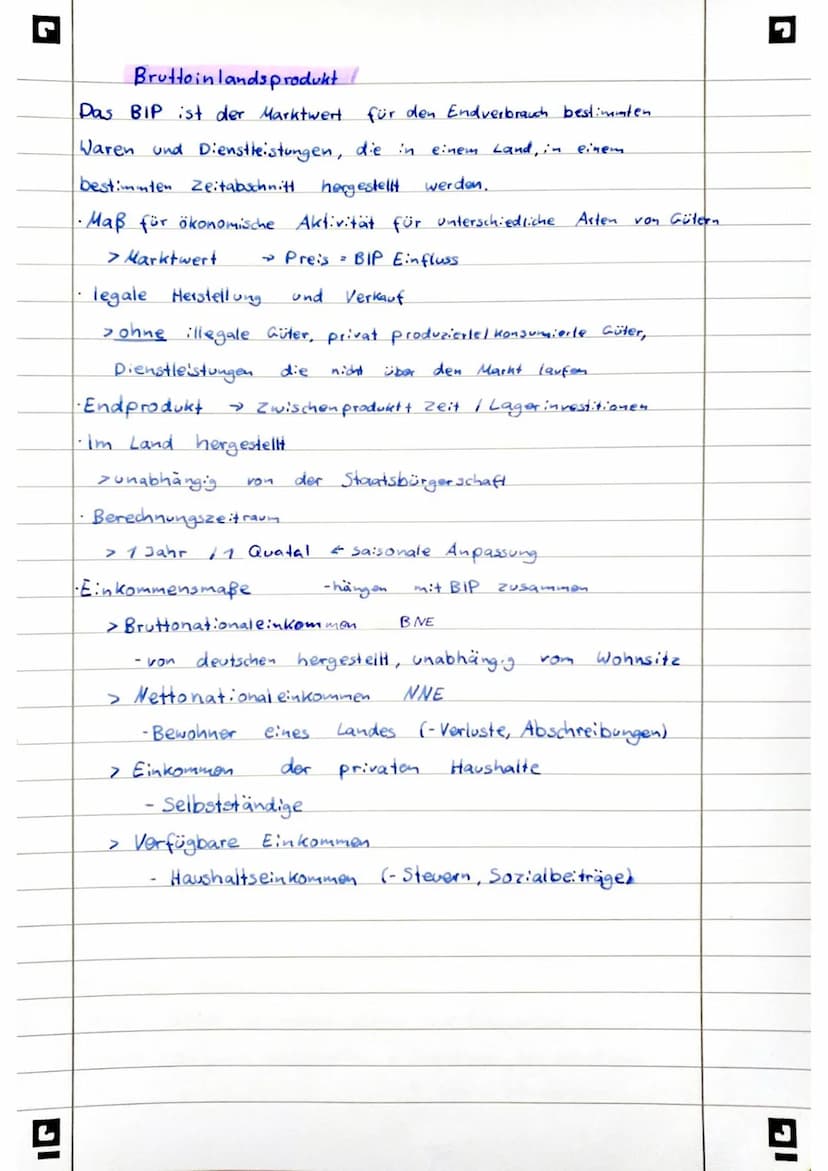 Bruttoinlandsprodukt
Das BIP ist der Marktwert für den Endverbrauch bestimmten
Waren und Dienstleistungen, die in einem Land, in einem
bestimmten Zeitabschnitt hergestellt werden.
· Maß für ökonomische Aktivität für unterschiedliche Arten von Gütern
> Marktwert → Preis = BIP Einfluss
· legale Herstellung und Verkauf
> ohne illegale Güter, privat produzierte/konsumierte Güter,
Dienstleistungen die nicht über den Markt laufen
· Endprodukt → Zwischenprodukt + Zeit / Lagerinvestitionen
· im Land hergestellt
> unabhängig von der Staatsbürgerschaft
· Berechnungszeitraum
> 1 Jahr / 1 Quatal ← saisonale Anpassung
· Einkommensmaße - hängen mit BIP zusammen
> Bruttonationaleinkommen BNE
- von deutschen hergestellt, unabhängig vom Wohnsitz
> Nettonationaleinkommen NNE
- Bewohner eines Landes (- Verluste, Abschreibungen)
> Einkommen der privaten Haushalte
- Selbstständige
> Verfügbare Einkommen
- Haushaltseinkommen (- Steuern, Sozialbeiträge)